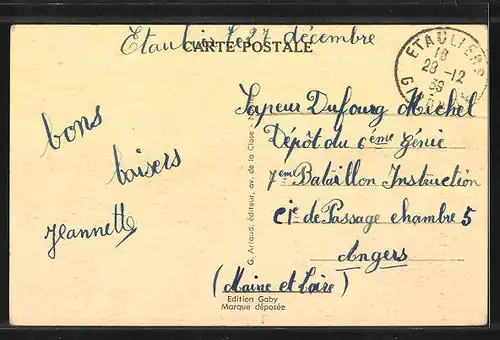 Etauliers le 27 décembre
CARTE POSTALE
ETAULIERS
18
28-12
39
G
bons
baisers
Jeannette
Sapeur Dufourg Michel
Dépôt du 6ème Génie
7ème Bataillon Instruction
Cie de Passage chambre 5
Angers
(Maine et Loire)
G. Arriaud, éditeur, av. de la Close
Edition Gaby
Marque déposée